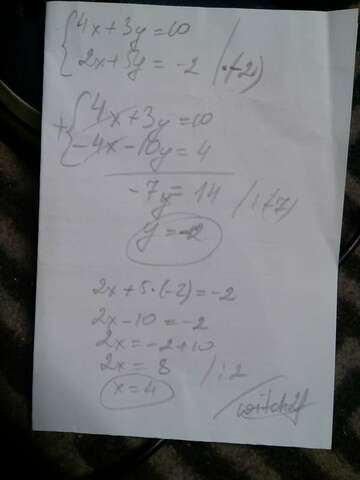 4x+3y=10
2x+5y=-2 /·(-2)
+ 4x+3y=10
-4x-10y=4
-7y=14 /:(-7)
y=-2
2x+5·(-2)=-2
2x-10=-2
2x=-2+10
2x=8 /:2
x=4